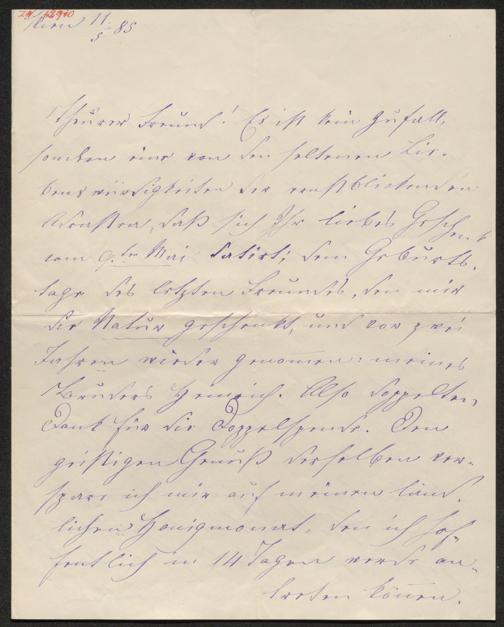 Wien 11/5 85
Theurer Freund! Es ist kein Zufall,
sondern eine von den seltenen Lie-
benswürdigkeiten der ernstblickenden
Adrastea, daß sich Ihr liebes Geschenk
vom 9.ten Mai datirt; dem Geburts-
tage des letzten Freundes, den mir
die Natur geschenkt, und vor zwei
Jahren wieder genommen: meines
Bruders Heinrich. Also doppelten
Dank für die Doppelspende. Den
geistigen Genuß derselben ver-
spare ich mir auf meinen länd-
lichen Honigmonat, den ich hof-
fentlich in 14 Tagen werde an-
treten können.